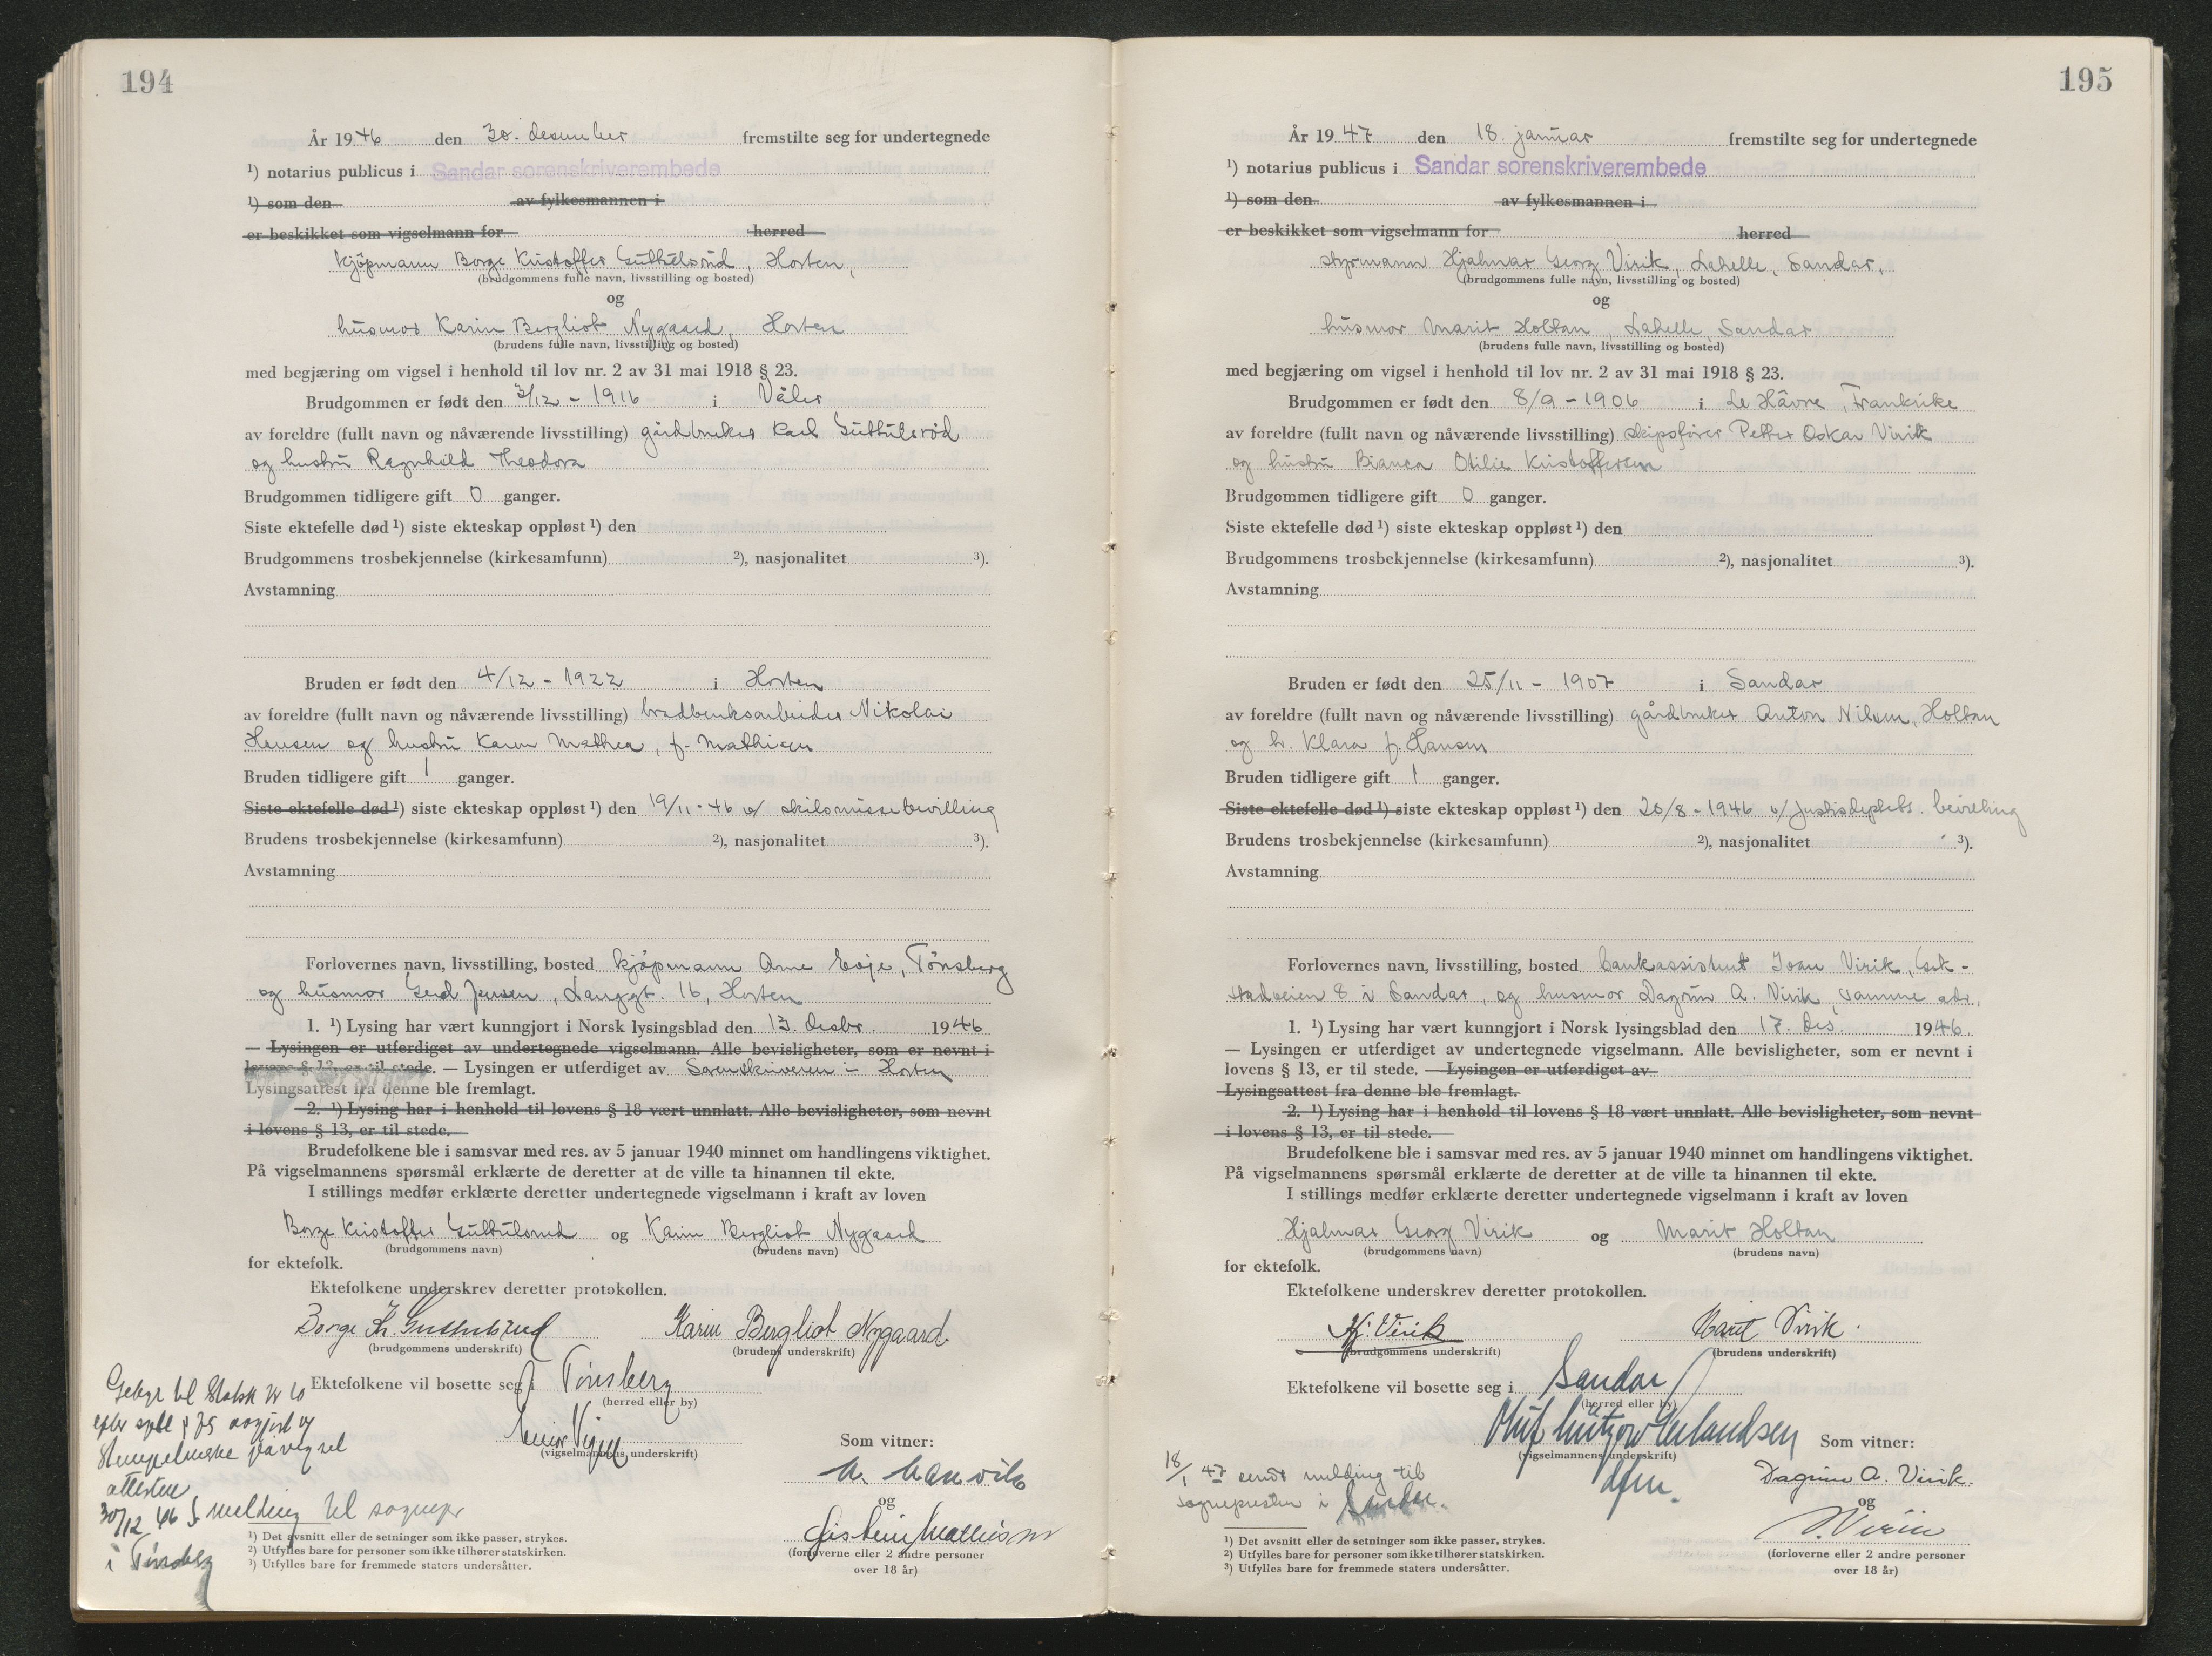 194
År 1946 den 30. desember fremstilte seg for undertegnede
¹) notarius publicus i Sandar sorenskriverembede
¹) som den av fylkesmannen i
er beskikket som vigselmann for herred
kjøpmann Borge Kristoffer Guttulsrud, Horten,
(brudgommens fulle navn, livsstilling og bosted)
og
husmor Karin Bergliot Nygaard, Horten
(brudens fulle navn, livsstilling og bosted)
med begjæring om vigsel i henhold til lov nr. 2 av 31 mai 1918 § 23.
Brudgommen er født den 3/12 - 1916 i Våler
av foreldre (fullt navn og nåværende livsstilling) gårdbruker Karl Guttulsrød
og hustru Ragnhild Theodora
Brudgommen tidligere gift 0 ganger.
Siste ektefelle død ¹) siste ekteskap oppløst ¹) den
Brudgommens trosbekjennelse (kirkesamfunn) ²), nasjonalitet ³).
Avstamning
Bruden er født den 4/12 - 1922 i Horten
av foreldre (fullt navn og nåværende livsstilling) bradbenksarbeider Nikolai
Hansen og hustru Karen Mathea, f. Mathisen
Bruden tidligere gift 1 ganger.
Siste ektefelle død ¹) siste ekteskap oppløst ¹) den 19/11 - 46 v/ skilsmissebevilling
Brudens trosbekjennelse (kirkesamfunn) ²), nasjonalitet ³).
Avstamning
Forlovernes navn, livsstilling, bosted kjøpmann Arne Evje, Tønsberg
og husmor Gerd Jensen, Langgt. 16, Horten
1. ¹) Lysing har vært kunngjort i Norsk lysingsblad den 13. desbr. 1946
— Lysingen er utferdiget av undertegnede vigselmann. Alle bevisligheter, som er nevnt i
lovens § 13, er til stede. — Lysingen er utferdiget av Sorenskriveren i Horten
Lysingsattest fra denne ble fremlagt.
2. ¹) Lysing har i henhold til lovens § 18 vært unnlatt. Alle bevisligheter, som nevnt
i lovens § 13, er til stede.
Brudefolkene ble i samsvar med res. av 5 januar 1940 minnet om handlingens viktighet.
På vigselmannens spørsmål erklærte de deretter at de ville ta hinannen til ekte.
I stillings medfør erklærte deretter undertegnede vigselmann i kraft av loven
Borge Kristoffer Guttulsrud og Karin Bergliot Nygaard
(brudgommens navn) (brudens navn)
for ektefolk.
Ektefolkene underskrev deretter protokollen.
Borge Kr. Guttulsrud Karin Bergliot Nygaard
(brudgommens underskrift) (brudens underskrift)
Ektefolkene vil bosette seg i Tønsberg
(herred eller by)
(vigselmannens underskrift)
Som vitner:
og
(forloverne eller 2 andre personer
over 18 år)
Gebyr til Statsk kr 10
stempelmerke på vigsel
attesten
30/12 46 melding til sognepr
i Tønsberg
¹) Det avsnitt eller de setninger som ikke passer, strykes.
²) Utfylles bare for personer som ikke tilhører statskirken.
³) Utfylles bare for fremmede staters undersåtter.
195
År 1947 den 18. januar fremstilte seg for undertegnede
¹) notarius publicus i Sandar sorenskriverembede
¹) som den av fylkesmannen i
er beskikket som vigselmann for herred
styrmann Hjalmar Georg Virik, Lahelle, Sandar,
(brudgommens fulle navn, livsstilling og bosted)
og
husmor Marit Holtan, Lahelle, Sandar
(brudens fulle navn, livsstilling og bosted)
med begjæring om vigsel i henhold til lov nr. 2 av 31 mai 1918 § 23.
Brudgommen er født den 8/9 - 1906 i Le Hâvre, Frankrike
av foreldre (fullt navn og nåværende livsstilling) skipsfører Petter Oskar Virik
og hustru Bianca Otilie Kristoffersen
Brudgommen tidligere gift 0 ganger.
Siste ektefelle død ¹) siste ekteskap oppløst ¹) den
Brudgommens trosbekjennelse (kirkesamfunn) ²), nasjonalitet ³).
Avstamning
Bruden er født den 25/11 - 1907 i Sandar
av foreldre (fullt navn og nåværende livsstilling) gårdbruker Anton Nilsen, Holtan
og h. Klara f. Hansen
Bruden tidligere gift 1 ganger.
Siste ektefelle død ¹) siste ekteskap oppløst ¹) den 26/8 - 1946 v/ Justisdeptets. bevilling
Brudens trosbekjennelse (kirkesamfunn) ²), nasjonalitet ³).
Avstamning
Forlovernes navn, livsstilling, bosted bankassistent Ivan Virik,
8 i Sandar, og husmor Dagrun A. Virik, samme adr.,
1. ¹) Lysing har vært kunngjort i Norsk lysingsblad den 17. des. 1946.
— Lysingen er utferdiget av undertegnede vigselmann. Alle bevisligheter, som er nevnt i
lovens § 13, er til stede. — Lysingen er utferdiget av
Lysingsattest fra denne ble fremlagt.
2. ¹) Lysing har i henhold til lovens § 18 vært unnlatt. Alle bevisligheter, som nevnt
i lovens § 13, er til stede.
Brudefolkene ble i samsvar med res. av 5 januar 1940 minnet om handlingens viktighet.
På vigselmannens spørsmål erklærte de deretter at de ville ta hinannen til ekte.
I stillings medfør erklærte deretter undertegnede vigselmann i kraft av loven
Hjalmar Georg Virik og Marit Holtan
(brudgommens navn) (brudens navn)
for ektefolk.
Ektefolkene underskrev deretter protokollen.
Hj. Virik Marit Virik.
(brudgommens underskrift) (brudens underskrift)
Ektefolkene vil bosette seg i Sandar
(herred eller by)
Oluf Lützow Erlandsen
(vigselmannens underskrift)
Som vitner:
dfm.
Dagrun A. Virik.
og
I. Virik
(forloverne eller 2 andre personer
over 18 år)
18/1 47 sendt melding til
sognepresten i Sandar.
¹) Det avsnitt eller de setninger som ikke passer, strykes.
²) Utfylles bare for personer som ikke tilhører statskirken.
³) Utfylles bare for fremmede staters undersåtter.